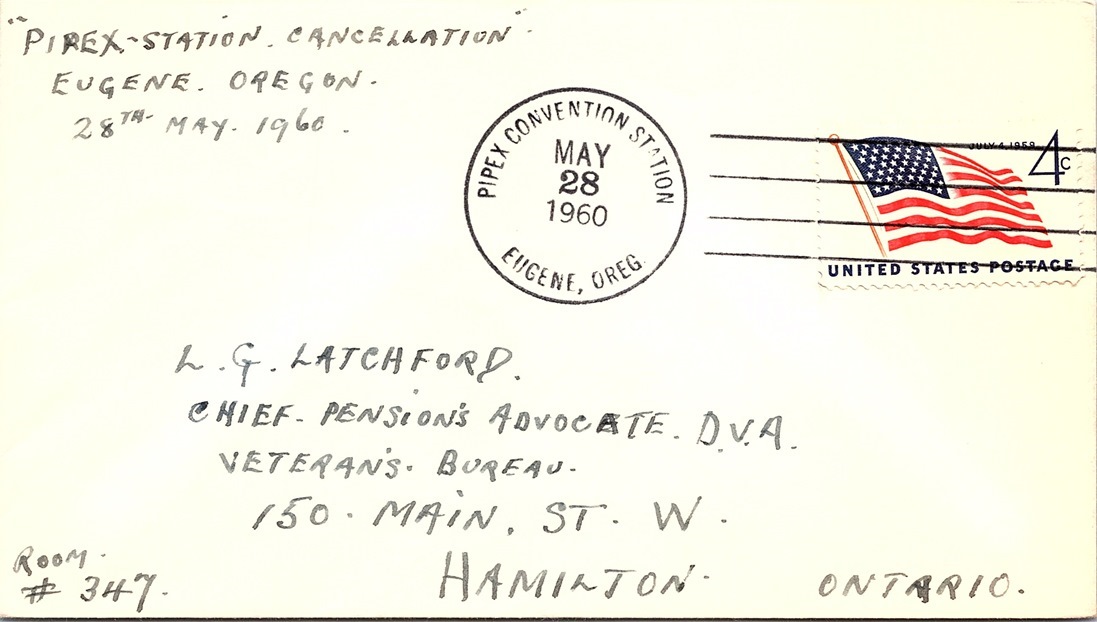 "PIREX-STATION. CANCELLATION"
EUGENE. OREGON.
28TH MAY. 1960.
PIPEX CONVENTION STATION
MAY
28
1960
EUGENE, OREG.
JULY 4, 1959
4c
UNITED STATES POSTAGE
L. G. LATCHFORD.
CHIEF- PENSION'S ADVOCATE. D.V.A.
VETERAN'S. BUREAU.
150. MAIN. ST. W.
HAMILTON. ONTARIO.
ROOM.
# 347.